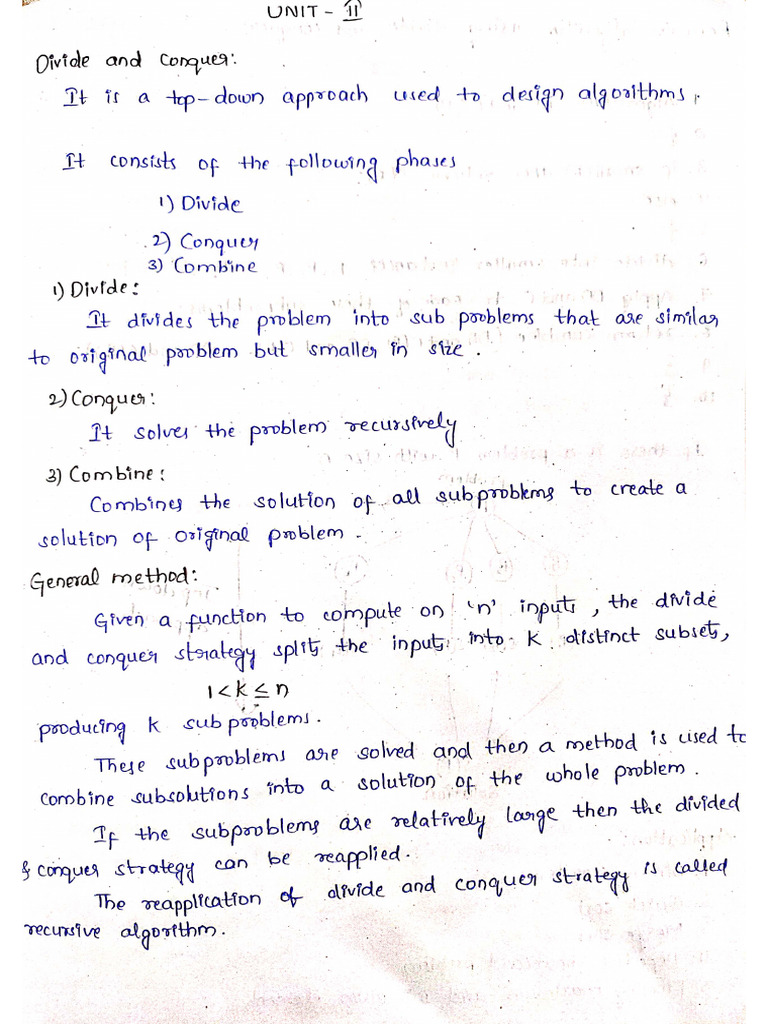 UNIT - II
Divide and Conquer:
It is a top-down approach used to design algorithms.
It consists of the following phases
1) Divide
2) Conquer
3) Combine
1) Divide:
It divides the problem into sub problems that are similar
to original problem but smaller in size.
2) Conquer:
It solves the problem recursively
3) Combine:
Combines the solution of all subproblems to create a
solution of original problem.
General method:
Given a function to compute on 'n' inputs, the divide
and conquer strategy splits the inputs into K distinct subsets,
1<k≤n
producing k sub problems.
These subproblems are solved and then a method is used to
combine subsolutions into a solution of the whole problem.
If the subproblems are relatively large then the divided
& conquer strategy can be reapplied.
The reapplication of divide and conquer strategy is called
recursive algorithm.